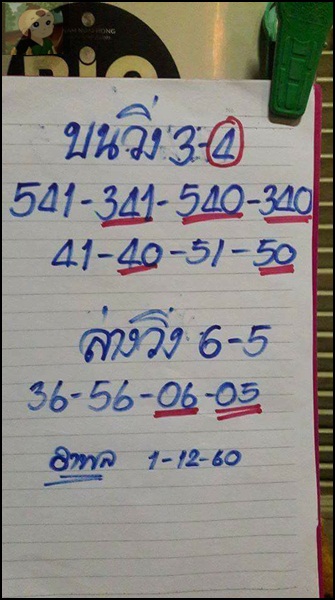 บนวิ่ง 3-4
541-341-540-340
41-40-51-50
ล่างวิ่ง 6-5
36-56-06-05
อำพล 1-12-60